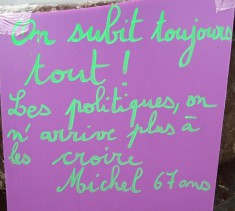 On subit toujours
tout !
Les politiques, on
n'arrive plus à
les croire
Michel 67 ans